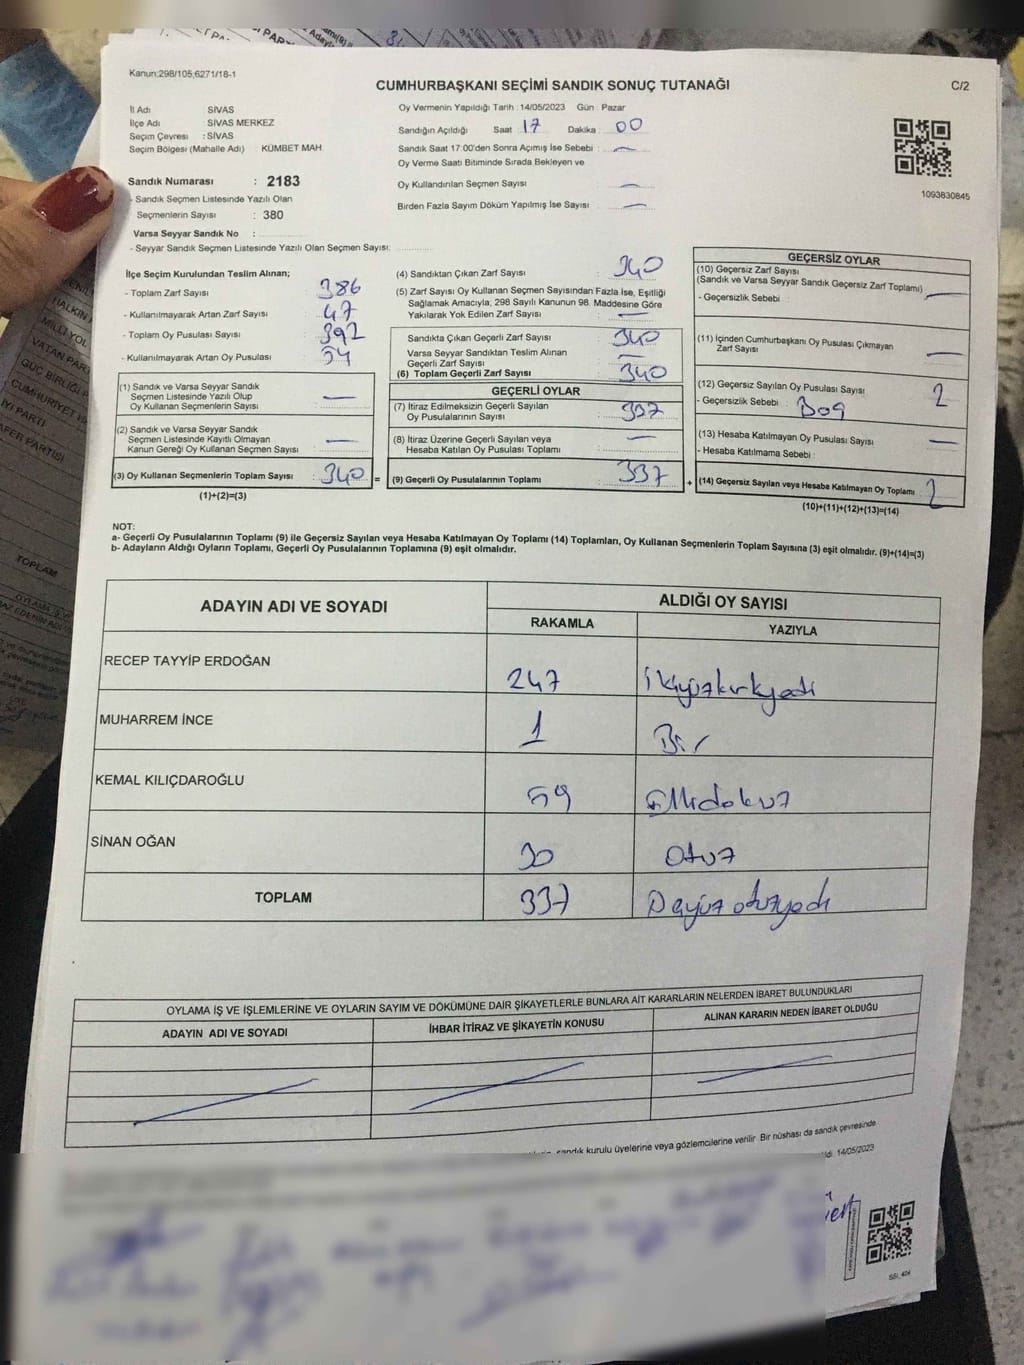 Kanun:298/105;6271/18-1
CUMHURBAŞKANI SEÇİMİ SANDIK SONUÇ TUTANAĞI
C/2
İl Adı : SİVAS
İlçe Adı : SİVAS MERKEZ
Seçim Çevresi : SİVAS
Seçim Bölgesi (Mahalle Adı) : KÜMBET MAH
Sandık Numarası : 2183
- Sandık Seçmen Listesinde Yazılı Olan
Seçmenlerin Sayısı : 380
Varsa Seyyar Sandık No :
- Seyyar Sandık Seçmen Listesinde Yazılı Olan Seçmen Sayısı:
Oy Vermenin Yapıldığı Tarih : 14/05/2023 Gün : Pazar
Sandığın Açıldığı Saat 17 Dakika 00
Sandık Saat 17:00'den Sonra Açımış İse Sebebi :
Oy Verme Saati Bitiminde Sırada Bekleyen ve
Oy Kullandırılan Seçmen Sayısı :
Birden Fazla Sayım Döküm Yapılmış İse Sayısı :
1093830845
İlçe Seçim Kurulundan Teslim Alınan;
- Toplam Zarf Sayısı : 386
- Kullanılmayarak Artan Zarf Sayısı : 47
- Toplam Oy Pusulası Sayısı : 392
- Kullanılmayarak Artan Oy Pusulası : 54
(1) Sandık ve Varsa Seyyar Sandık
Seçmen Listesinde Yazılı Olup
Oy Kullanan Seçmenlerin Sayısı :
(2) Sandık ve Varsa Seyyar Sandık
Seçmen Listesinde Kayıtlı Olmayan
Kanun Gereği Oy Kullanan Seçmen Sayısı :
(3) Oy Kullanan Seçmenlerin Toplam Sayısı : 340 =
(1)+(2)=(3)
(4) Sandıktan Çıkan Zarf Sayısı : 340
(5) Zarf Sayısı Oy Kullanan Seçmen Sayısından Fazla İse, Eşitliği
Sağlamak Amacıyla, 298 Sayılı Kanunun 98. Maddesine Göre
Yakılarak Yok Edilen Zarf Sayısı :
Sandıkta Çıkan Geçerli Zarf Sayısı : 340
Varsa Seyyar Sandıktan Teslim Alınan
Geçerli Zarf Sayısı :
(6) Toplam Geçerli Zarf Sayısı : 340
GEÇERLİ OYLAR
(7) İtiraz Edilmeksizin Geçerli Sayılan
Oy Pusulalarının Sayısı : 337
(8) İtiraz Üzerine Geçerli Sayılan veya
Hesaba Katılan Oy Pusulası Toplamı :
(9) Geçerli Oy Pusulalarının Toplamı : 337 +
GEÇERSİZ OYLAR
(10) Geçersiz Zarf Sayısı
(Sandık ve Varsa Seyyar Sandık Geçersiz Zarf Toplamı) :
- Geçersizlik Sebebi :
(11) İçinden Cumhurbaşkanı Oy Pusulası Çıkmayan
Zarf Sayısı :
(12) Geçersiz Sayılan Oy Pusulası Sayısı : 2
- Geçersizlik Sebebi :
(13) Hesaba Katılmayan Oy Pusulası Sayısı :
- Hesaba Katılmama Sebebi :
(14) Geçersiz Sayılan veya Hesaba Katılmayan Oy Toplamı : 2
(10)+(11)+(12)+(13)=(14)
NOT:
a- Geçerli Oy Pusulalarının Toplamı (9) ile Geçersiz Sayılan veya Hesaba Katılmayan Oy Toplamı (14) Toplamları, Oy Kullanan Seçmenlerin Toplam Sayısına (3) eşit olmalıdır. (9)+(14)=(3)
b- Adayların Aldığı Oyların Toplamı, Geçerli Oy Pusulalarının Toplamına (9) eşit olmalıdır.
ADAYIN ADI VE SOYADI
ALDIĞI OY SAYISI
RAKAMLA YAZIYLA
RECEP TAYYİP ERDOĞAN 247 ikiyüzkırkyedi
MUHARREM İNCE 1 Bir
KEMAL KILIÇDAROĞLU 59 Ellidokuz
SİNAN OĞAN 30 Otuz
TOPLAM 337
OYLAMA İŞ VE İŞLEMLERİNE VE OYLARIN SAYIM VE DÖKÜMÜNE DAİR ŞİKAYETLERLE BUNLARA AİT KARARLARIN NELERDEN İBARET BULUNDUKLARI
ADAYIN ADI VE SOYADI
İHBAR İTİRAZ VE ŞİKAYETİN KONUSU
ALINAN KARARIN NEDEN İBARET OLDUĞU
sandık kurulu üyelerine veya gözlemcilerine verilir. Bir nüshası da sandık çevresinde
14/05/2023